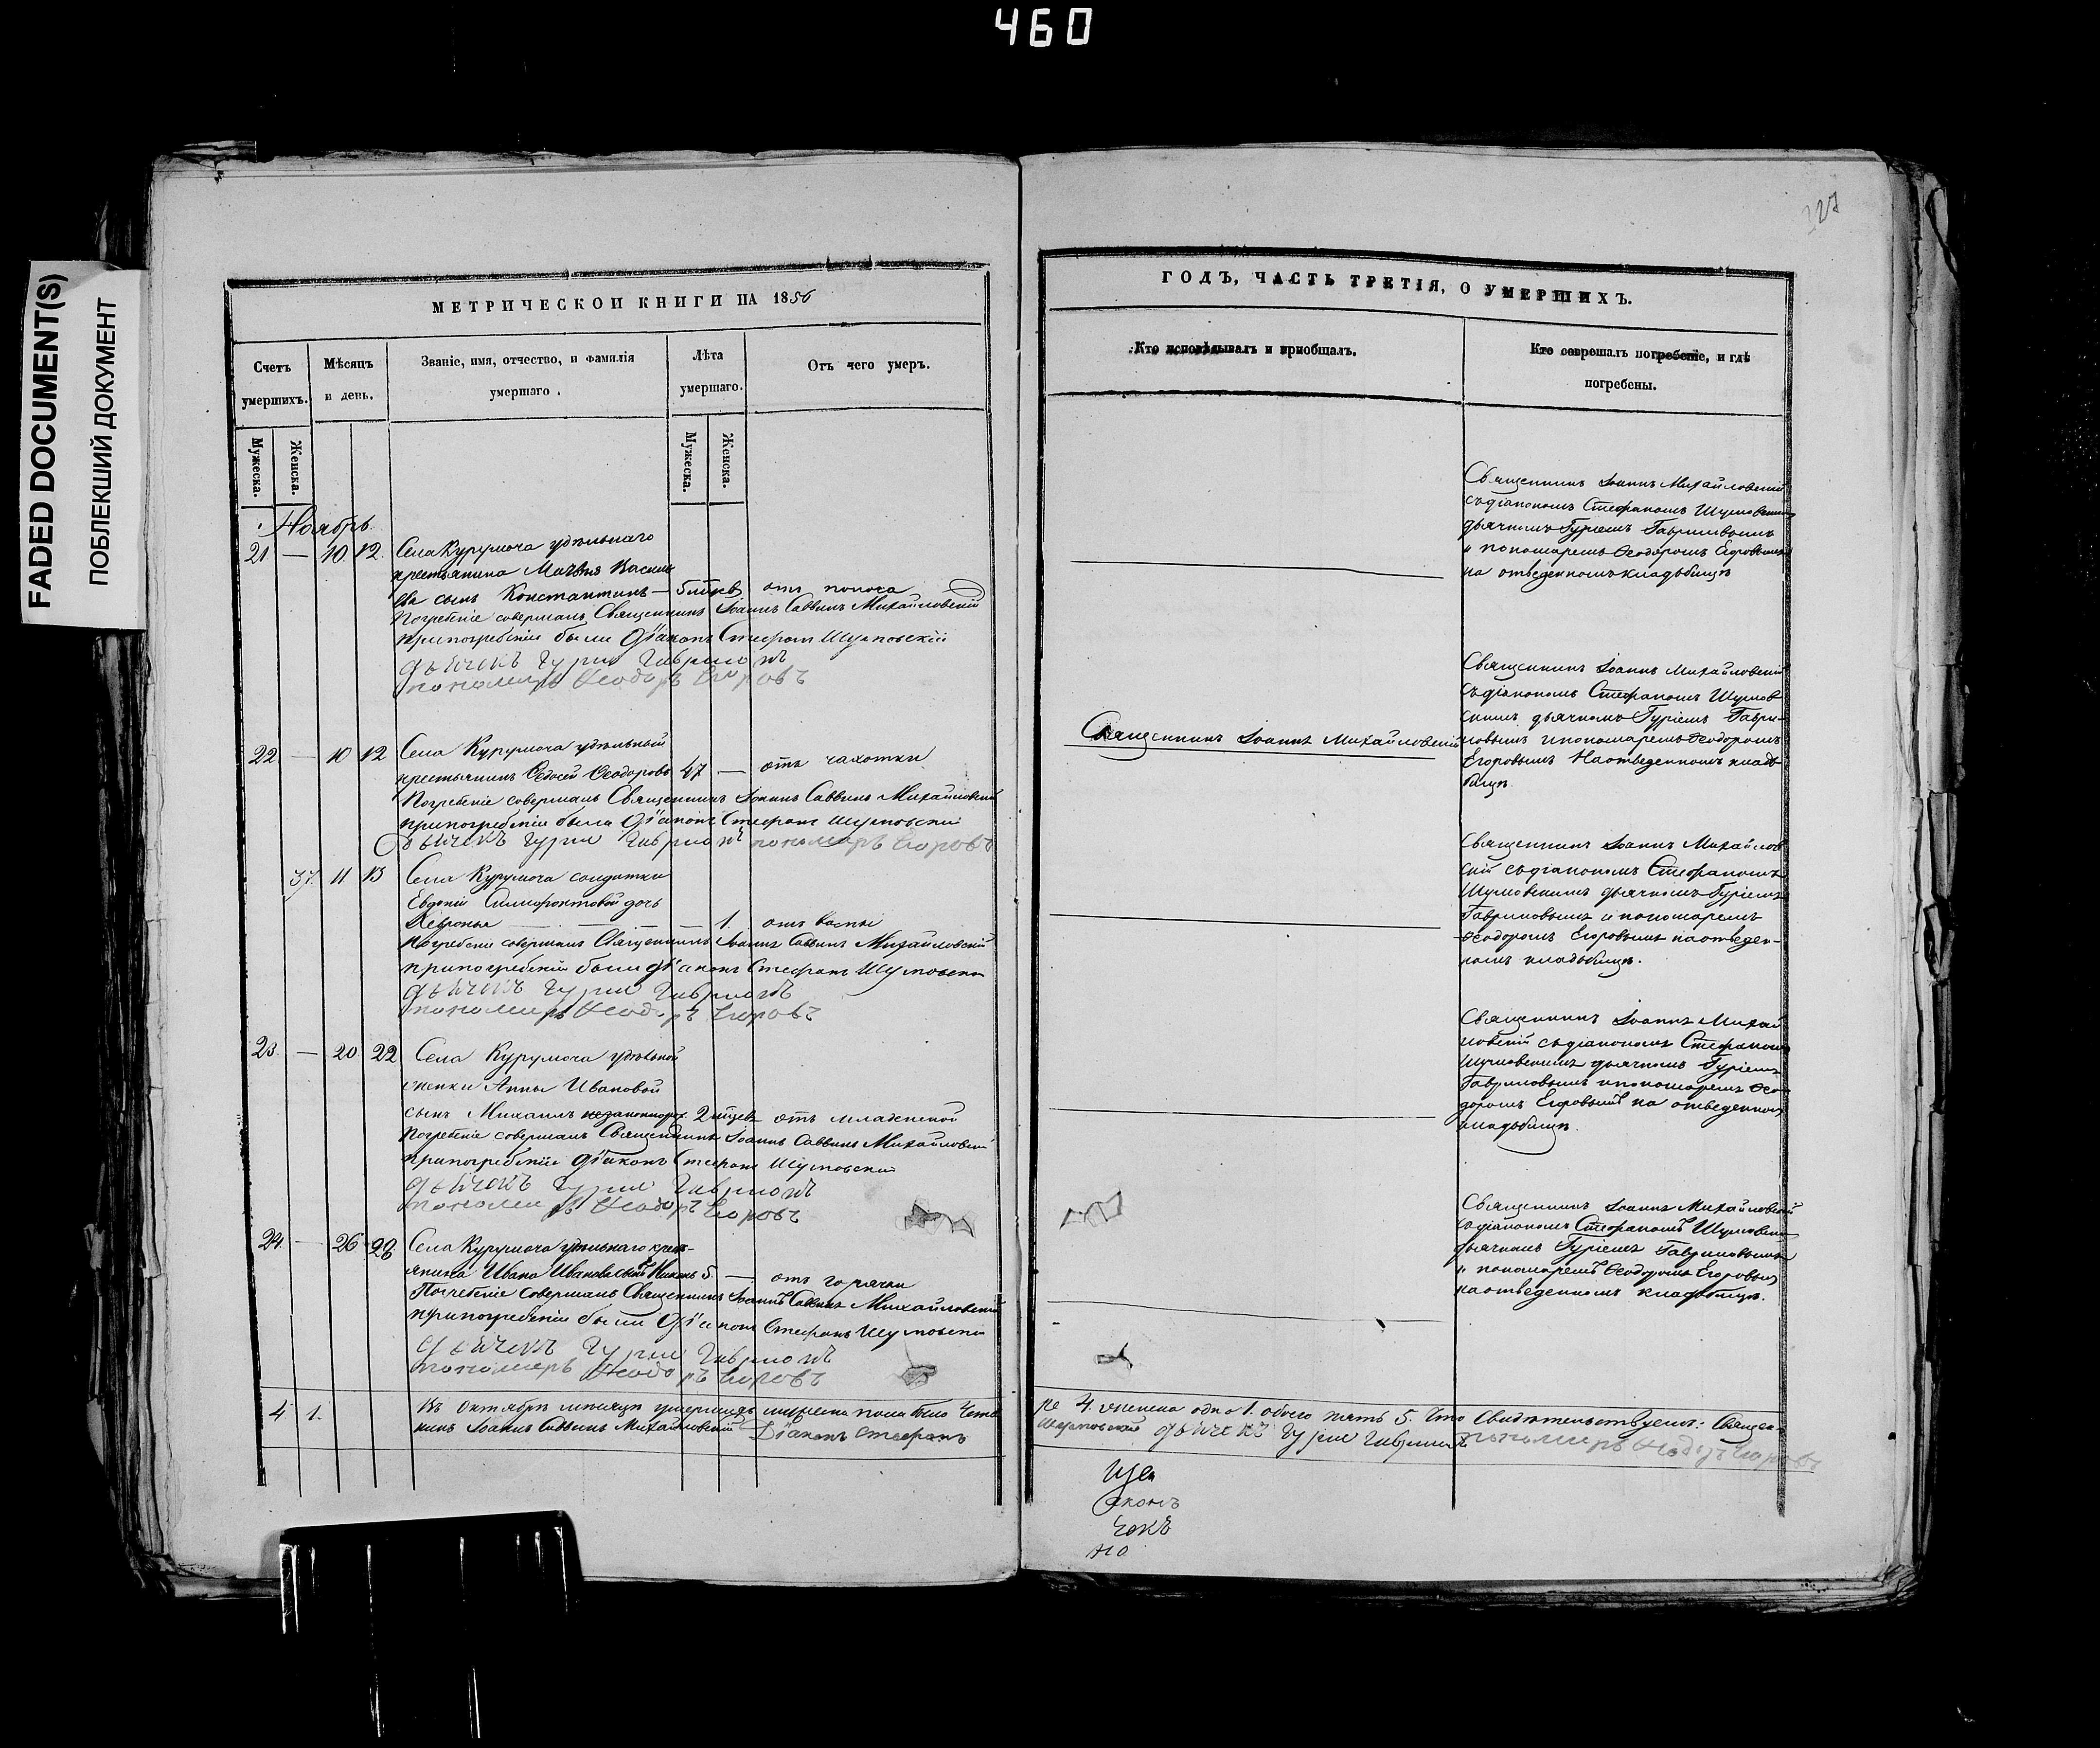 460
FADED DOCUMENT(S)
ПОБЛЕКШИЙ ДОКУМЕНТ
МЕТРИЧЕСКОЙ КНИГИ НА 1856
Счетъ умершихъ.
Мужеска.
Женска.
Мѣсяцъ и день.
Званіе, имя, отчество, и фамилія умершаго.
Лѣта умершаго.
Мужеска.
Женска.
Отъ чего умеръ.
Ноябрь
21 — 10 12. Села Курумоча удѣльнаго
крестьянина Матвѣя Василь
ева сынъ Константинъ — 5 отъ поноса
Погребеніе совершалъ Священникъ Іоаннъ Саввинъ Михайловскій
при погребеніи были Діаконъ Стефанъ Шумовскій
дьячекъ Гурій Гавриловъ
пономарь Ѳеодоръ Егоровъ
22 — 10 12 Села Курумоча удѣльный
крестьянинъ Ѳедосей Ѳеодоровъ 47 — отъ чахотки
Погребеніе совершалъ Священникъ Іоаннъ Саввинъ Михайловскій
при погребеніи были Діаконъ Стефанъ Шумовскій
дьячекъ Гурій Гавриловъ пономарь Егоровъ
37. 11 13 Села Курумоча солдатки
Евдокіи дочь
1. отъ воспы
Погребеніе совершалъ Священникъ Іоаннъ Саввинъ Михайловскій
при погребеніи были діаконъ Стефанъ Шумовскій
дьячекъ Гурій Гавриловъ
пономарь Ѳеодоръ Егоровъ
23. — 20 22 Села Курумоча удѣльной
Анны Ивановой
сынъ Михаилъ незаконнорож. 2 отъ младенской
Погребеніе совершалъ Священникъ Іоаннъ Саввинъ Михайловскій
при погребеніи діаконъ Стефанъ Шумовскій
дьячекъ Гурій Гавриловъ
пономарь Ѳеодоръ Егоровъ
24. — 26 28 Села Курумоча удѣльнаго крест-
янина Ивана Иванова сынъ 5. — отъ горячки
Погребеніе совершалъ Священникъ Іоаннъ Саввинъ Михайловскій
при погребеніи были Діаконъ Стефанъ Шумовскій
дьячекъ Гурій Гавриловъ
пономарь Ѳеодоръ Егоровъ
4 1. Въ Октябрѣ мѣсяцѣ умершихъ мужеска пола было четы
никъ Іоаннъ Саввинъ Михайловскій Діаконъ Стефанъ
227
ГОДЪ, ЧАСТЬ ТРЕТІЯ, О УМЕРШИХЪ.
Кто исповѣдывалъ и пріобщалъ.
Кто совершалъ погребеніе, и гдѣ погребены.
Священникъ Іоаннъ Михайловскій
съ діакономъ Стефаномъ Шумовскимъ
дьячкомъ Гуріемъ Гавриловымъ
и пономаремъ Ѳеодоромъ Егоровымъ
на отведенномъ кладбищѣ
Священникъ Іоаннъ Михайловскій
Священникъ Іоаннъ Михайловскій
съ діакономъ Стефаномъ Шумов
скимъ дьячкомъ Гуріемъ Гаври-
ловымъ и пономаремъ Ѳеодоромъ
Егоровымъ На отведенномъ кладъ
бищѣ
Священникъ Іоаннъ Михайлов
скій съ діакономъ Стефаномъ
Шумовскимъ дьячкомъ Гуріемъ
Гавриловымъ и пономаремъ
Ѳеодоромъ Егоровымъ на отведен-
номъ кладбищѣ.
Священникъ Іоаннъ Михай
ловскій съ діакономъ Стефаномъ
Шумовскимъ дьячкомъ Гуріемъ
Гавриловымъ и пономаремъ Ѳео
доромъ Егоровымъ на отведенномъ
кладбищѣ.
Священникъ Іоаннъ Михайловскій
съ діакономъ Стефаномъ Шумовскимъ
дьячкомъ Гуріемъ Гавриловымъ
и пономаремъ Ѳеодоромъ Егоровымъ
на отведенномъ кладбищѣ.
ре 4. женска одно 1. обоего пять 5. Что свидѣтельствуемъ: Священ-
Шумовскій дьячекъ Гурій Гавриловъ пономарь Ѳеодоръ Егоровъ
ще
аконъ
чекъ
но